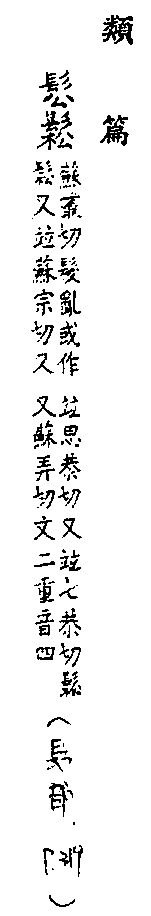 類篇
䯳鬆
蘇叢切髮亂或作
鬆又竝蘇宗切又
竝思恭切又竝七恭切鬆
又蘇弄切文二重音四
(髟部. P.319)